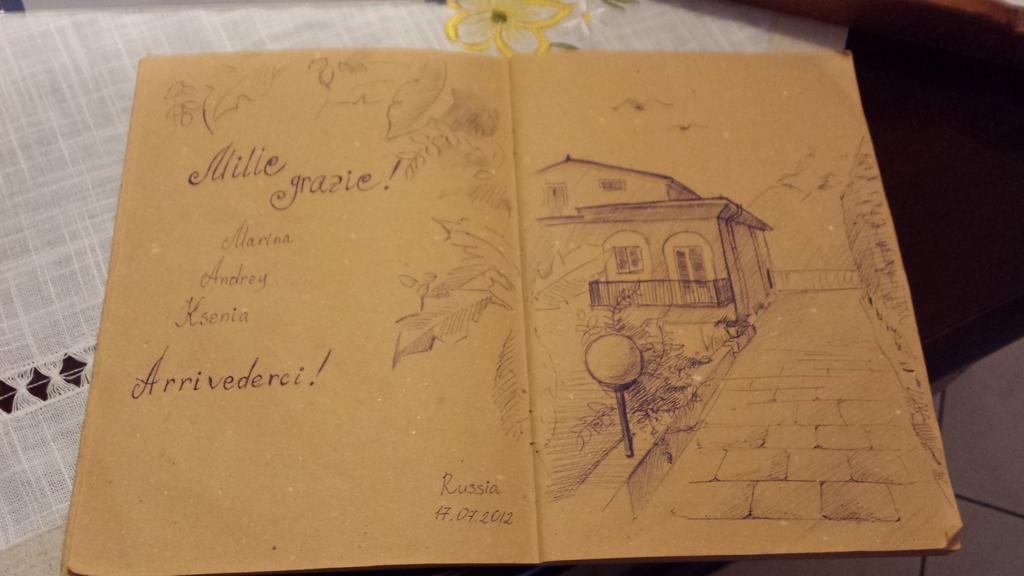 Mille
grazie!
Marina
Andrey
Ksenia
Arrivederci!
Russia
17.07.2012